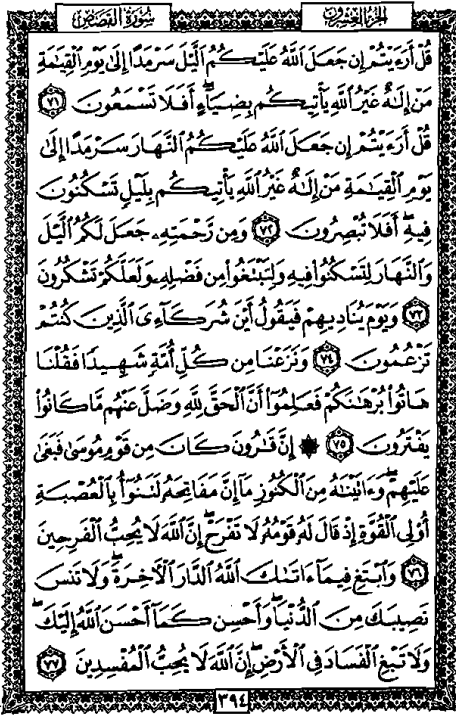 سُورَةُ القَصَصِ
الجُزءُ العِشْرُونَ
قُلْ أَرَءَيْتُمْ إِن جَعَلَ ٱللَّهُ عَلَيْكُمُ ٱلَّيْلَ سَرْمَدًا إِلَىٰ يَوْمِ ٱلْقِيَٰمَةِ
مَنْ إِلَٰهٌ غَيْرُ ٱللَّهِ يَأْتِيكُم بِضِيَآءٍ ۖ أَفَلَا تَسْمَعُونَ ٧١
قُلْ أَرَءَيْتُمْ إِن جَعَلَ ٱللَّهُ عَلَيْكُمُ ٱلنَّهَارَ سَرْمَدًا إِلَىٰ
يَوْمِ ٱلْقِيَٰمَةِ مَنْ إِلَٰهٌ غَيْرُ ٱللَّهِ يَأْتِيكُم بِلَيْلٍ تَسْكُنُونَ
فِيهِ ۖ أَفَلَا تُبْصِرُونَ ٧٢ وَمِن رَّحْمَتِهِۦ جَعَلَ لَكُمُ ٱلَّيْلَ
وَٱلنَّهَارَ لِتَسْكُنُوا۟ فِيهِ وَلِتَبْتَغُوا۟ مِن فَضْلِهِۦ وَلَعَلَّكُمْ تَشْكُرُونَ
٧٣ وَيَوْمَ يُنَادِيهِمْ فَيَقُولُ أَيْنَ شُرَكَآءِىَ ٱلَّذِينَ كُنتُمْ
تَزْعُمُونَ ٧٤ وَنَزَعْنَا مِن كُلِّ أُمَّةٍ شَهِيدًا فَقُلْنَا
هَاتُوا۟ بُرْهَٰنَكُمْ فَعَلِمُوٓا۟ أَنَّ ٱلْحَقَّ لِلَّهِ وَضَلَّ عَنْهُم مَّا كَانُوا۟
يَفْتَرُونَ ٧٥ ۞ إِنَّ قَٰرُونَ كَانَ مِن قَوْمِ مُوسَىٰ فَبَغَىٰ
عَلَيْهِمْ ۖ وَءَاتَيْنَٰهُ مِنَ ٱلْكُنُوزِ مَآ إِنَّ مَفَاتِحَهُۥ لَتَنُوٓأُ بِٱلْعُصْبَةِ
أُو۟لِى ٱلْقُوَّةِ إِذْ قَالَ لَهُۥ قَوْمُهُۥ لَا تَفْرَحْ ۖ إِنَّ ٱللَّهَ لَا يُحِبُّ ٱلْفَرِحِينَ
٧٦ وَٱبْتَغِ فِيمَآ ءَاتَىٰكَ ٱللَّهُ ٱلدَّارَ ٱلْءَاخِرَةَ ۖ وَلَا تَنسَ
نَصِيبَكَ مِنَ ٱلدُّنْيَا ۖ وَأَحْسِن كَمَآ أَحْسَنَ ٱللَّهُ إِلَيْكَ ۖ
وَلَا تَبْغِ ٱلْفَسَادَ فِى ٱلْأَرْضِ ۖ إِنَّ ٱللَّهَ لَا يُحِبُّ ٱلْمُفْسِدِينَ ٧٧
٣٩٤